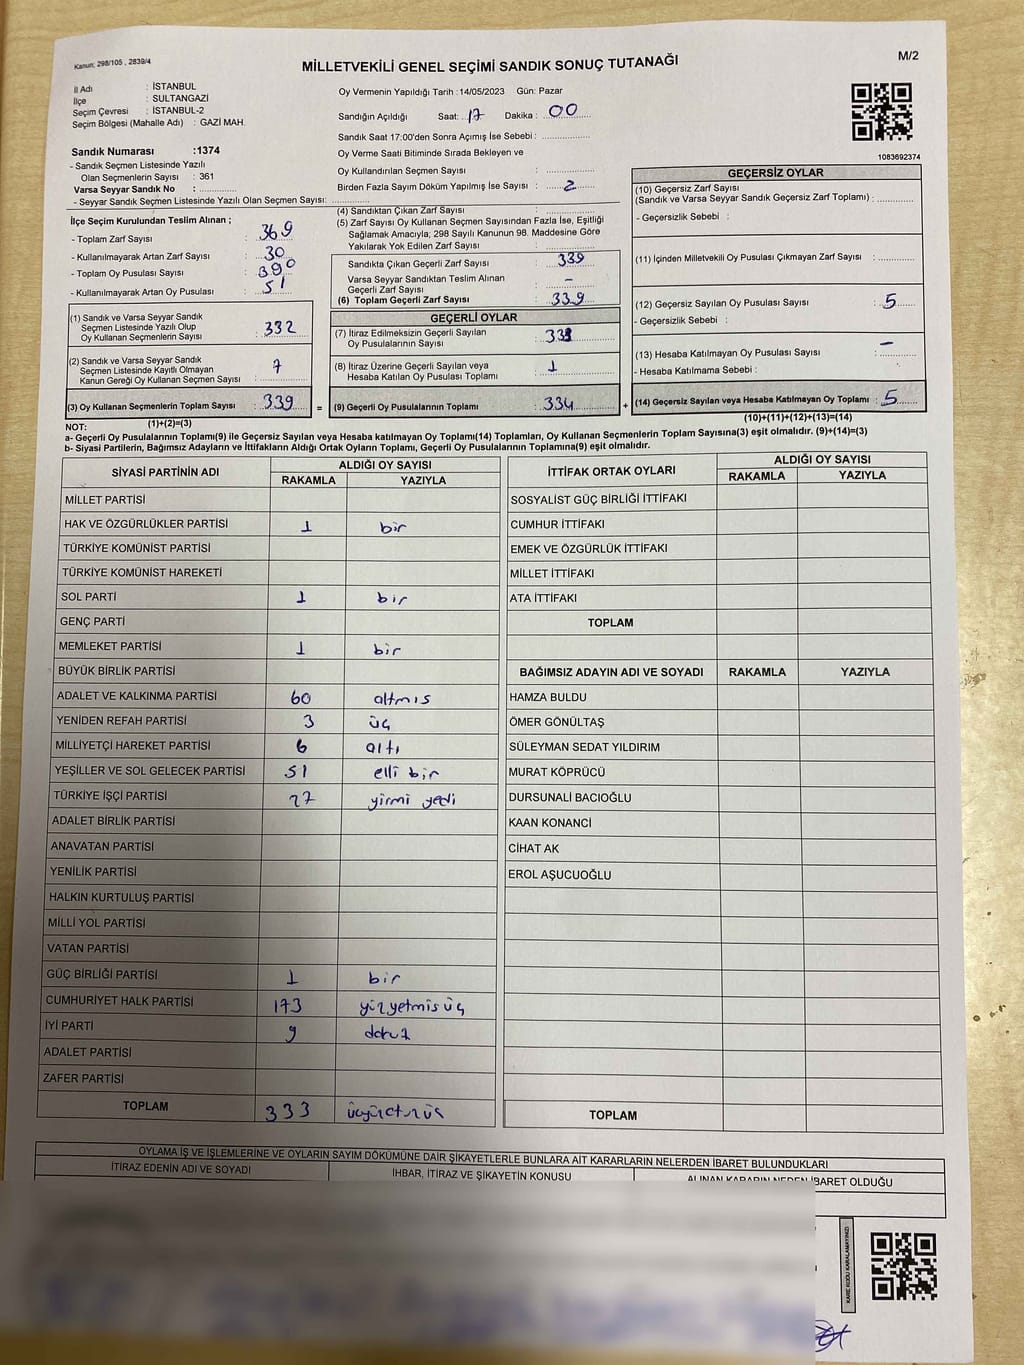 Kanun: 298/105 , 2839/4
MİLLETVEKİLİ GENEL SEÇİMİ SANDIK SONUÇ TUTANAĞI
M/2
İl Adı : İSTANBUL
İlçe : SULTANGAZİ
Seçim Çevresi : İSTANBUL-2
Seçim Bölgesi (Mahalle Adı) : GAZİ MAH.
Oy Vermenin Yapıldığı Tarih : 14/05/2023 Gün: Pazar
Sandığın Açıldığı Saat: 17 Dakika : 00
Sandık Saat 17:00'den Sonra Açımış İse Sebebi :
Oy Verme Saati Bitiminde Sırada Bekleyen ve
Oy Kullandırılan Seçmen Sayısı :
Birden Fazla Sayım Döküm Yapılmış İse Sayısı : 2
1083692374
Sandık Numarası :1374
- Sandık Seçmen Listesinde Yazılı
Olan Seçmenlerin Sayısı : 361
Varsa Seyyar Sandık No :
- Seyyar Sandık Seçmen Listesinde Yazılı Olan Seçmen Sayısı:
İlçe Seçim Kurulundan Teslim Alınan ;
- Toplam Zarf Sayısı : 369
- Kullanılmayarak Artan Zarf Sayısı : 30
- Toplam Oy Pusulası Sayısı : 390
- Kullanılmayarak Artan Oy Pusulası : 51
(1) Sandık ve Varsa Seyyar Sandık
Seçmen Listesinde Yazılı Olup
Oy Kullanan Seçmenlerin Sayısı : 332
(2) Sandık ve Varsa Seyyar Sandık
Seçmen Listesinde Kayıtlı Olmayan
Kanun Gereği Oy Kullanan Seçmen Sayısı : 7
(3) Oy Kullanan Seçmenlerin Toplam Sayısı : 339
(1)+(2)=(3)
(4) Sandıktan Çıkan Zarf Sayısı :
(5) Zarf Sayısı Oy Kullanan Seçmen Sayısından Fazla İse, Eşitliği
Sağlamak Amacıyla; 298 Sayılı Kanunun 98. Maddesine Göre
Yakılarak Yok Edilen Zarf Sayısı :
Sandıkta Çıkan Geçerli Zarf Sayısı : 339
Varsa Seyyar Sandıktan Teslim Alınan
Geçerli Zarf Sayısı : -
(6) Toplam Geçerli Zarf Sayısı : 339
GEÇERLİ OYLAR
(7) İtiraz Edilmeksizin Geçerli Sayılan
Oy Pusulalarının Sayısı :
(8) İtiraz Üzerine Geçerli Sayılan veya
Hesaba Katılan Oy Pusulası Toplamı : 1
= (9) Geçerli Oy Pusulalarının Toplamı : 334
GEÇERSİZ OYLAR
(10) Geçersiz Zarf Sayısı
(Sandık ve Varsa Seyyar Sandık Geçersiz Zarf Toplamı) :
- Geçersizlik Sebebi :
(11) İçinden Milletvekili Oy Pusulası Çıkmayan Zarf Sayısı :
(12) Geçersiz Sayılan Oy Pusulası Sayısı : 5
- Geçersizlik Sebebi :
(13) Hesaba Katılmayan Oy Pusulası Sayısı : -
- Hesaba Katılmama Sebebi :
+ (14) Geçersiz Sayılan veya Hesaba Katılmayan Oy Toplamı : 5
(10)+(11)+(12)+(13)=(14)
NOT:
a- Geçerli Oy Pusulalarının Toplamı(9) ile Geçersiz Sayılan veya Hesaba katılmayan Oy Toplamı(14) Toplamları, Oy Kullanan Seçmenlerin Toplam Sayısına(3) eşit olmalıdır. (9)+(14)=(3)
b- Siyasi Partilerin, Bağımsız Adayların ve İttifakların Aldığı Ortak Oyların Toplamı, Geçerli Oy Pusulalarının Toplamına(9) eşit olmalıdır.
SİYASİ PARTİNİN ADI ALDIĞI OY SAYISI
RAKAMLA YAZIYLA
MİLLET PARTİSİ
HAK VE ÖZGÜRLÜKLER PARTİSİ 1 bir
TÜRKİYE KOMÜNİST PARTİSİ
TÜRKİYE KOMÜNİST HAREKETİ
SOL PARTİ 1 bir
GENÇ PARTİ
MEMLEKET PARTİSİ 1 bir
BÜYÜK BİRLİK PARTİSİ
ADALET VE KALKINMA PARTİSİ 60 altmıs
YENİDEN REFAH PARTİSİ 3 üç
MİLLİYETÇİ HAREKET PARTİSİ 6 altı
YEŞİLLER VE SOL GELECEK PARTİSİ 51 elli bir
TÜRKİYE İŞÇİ PARTİSİ 27 yirmi yedi
ADALET BİRLİK PARTİSİ
ANAVATAN PARTİSİ
YENİLİK PARTİSİ
HALKIN KURTULUŞ PARTİSİ
MİLLİ YOL PARTİSİ
VATAN PARTİSİ
GÜÇ BİRLİĞİ PARTİSİ 1 bir
CUMHURİYET HALK PARTİSİ 173 yüzyetmisüç
İYİ PARTİ 9 dokuz
ADALET PARTİSİ
ZAFER PARTİSİ
TOPLAM 333
İTTİFAK ORTAK OYLARI ALDIĞI OY SAYISI
RAKAMLA YAZIYLA
SOSYALİST GÜÇ BİRLİĞİ İTTİFAKI
CUMHUR İTTİFAKI
EMEK VE ÖZGÜRLÜK İTTİFAKI
MİLLET İTTİFAKI
ATA İTTİFAKI
TOPLAM
BAĞIMSIZ ADAYIN ADI VE SOYADI RAKAMLA YAZIYLA
HAMZA BULDU
ÖMER GÖNÜLTAŞ
SÜLEYMAN SEDAT YILDIRIM
MURAT KÖPRÜCÜ
DURSUNALİ BACIOĞLU
KAAN KONANCİ
CİHAT AK
EROL AŞUCUOĞLU
TOPLAM
OYLAMA İŞ VE İŞLEMLERİNE VE OYLARIN SAYIM DÖKÜMÜNE DAİR ŞİKAYETLERLE BUNLARA AİT KARARLARIN NELERDEN İBARET BULUNDUKLARI
İTİRAZ EDENİN ADI VE SOYADI İHBAR, İTİRAZ VE ŞİKAYETİN KONUSU ALINAN KARARIN NEDEN İBARET OLDUĞU
KARE KODU KARALAMAYINIZ!